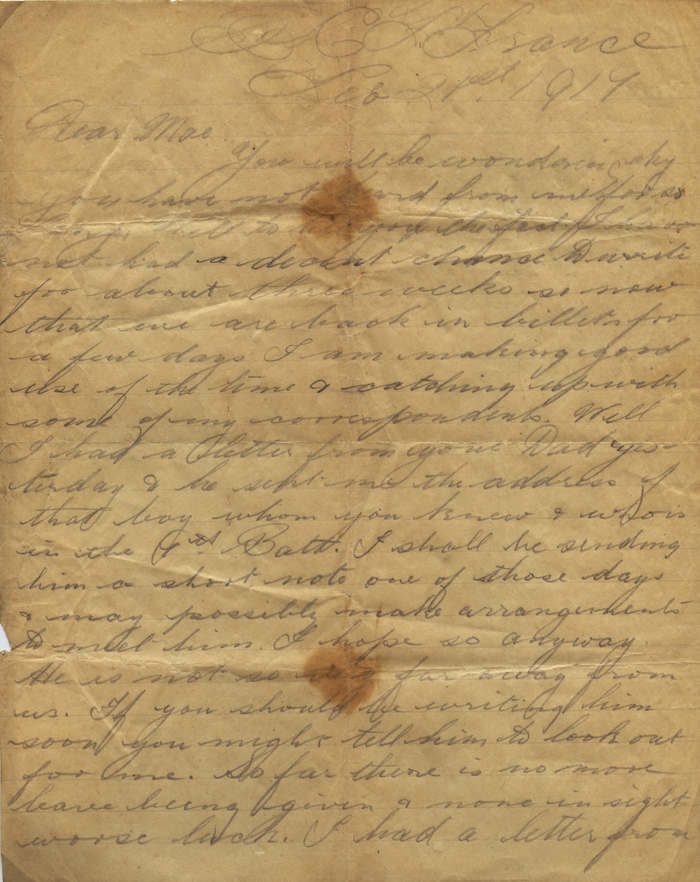 France
Feb 21st. 1917
Dear Mae
You will be wondering why
you have not heard from me for so
long. Well to tell you the fact I have
not had a decent chance to write
for about three weeks so now
that we are back in billets for
a few days I am making good
use of the time & catching up with
some of my correspondents. Well
I had a letter from your Dad yes-
terday & he sent me the address of
that boy whom you knew & who is
in the 1st Batt. I shall be sending
him a short note one of those days
& may possibly make arrangements
to meet him. I hope so anyway.
He is not so very far away from
us. If you should be writing him
soon you might tell him to look out
for me. So far there is no more
leave being given & none in sight
worse luck. I had a letter from